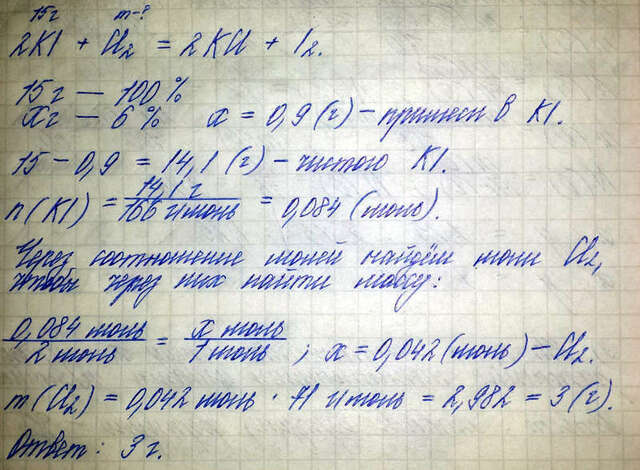 15г m-?
2KI + Cl₂ = 2KCl + I₂.
15г — 100%
Xг — 6% x = 0,9(г) – примеси в KI.
15 – 0,9 = 14,1(г) – чистого KI.
n(KI) = 14,1 г / 166 г/моль = 0,084 (моль).
Через соотношение молей найдём моли Cl₂,
чтобы через них найти массу:
0,084 моль / 2 моль = x моль / 1 моль ; x = 0,042(моль) – Cl₂.
m(Cl₂) = 0,042 моль · 71 г/моль = 2,982 = 3(г).
Ответ: 3г.